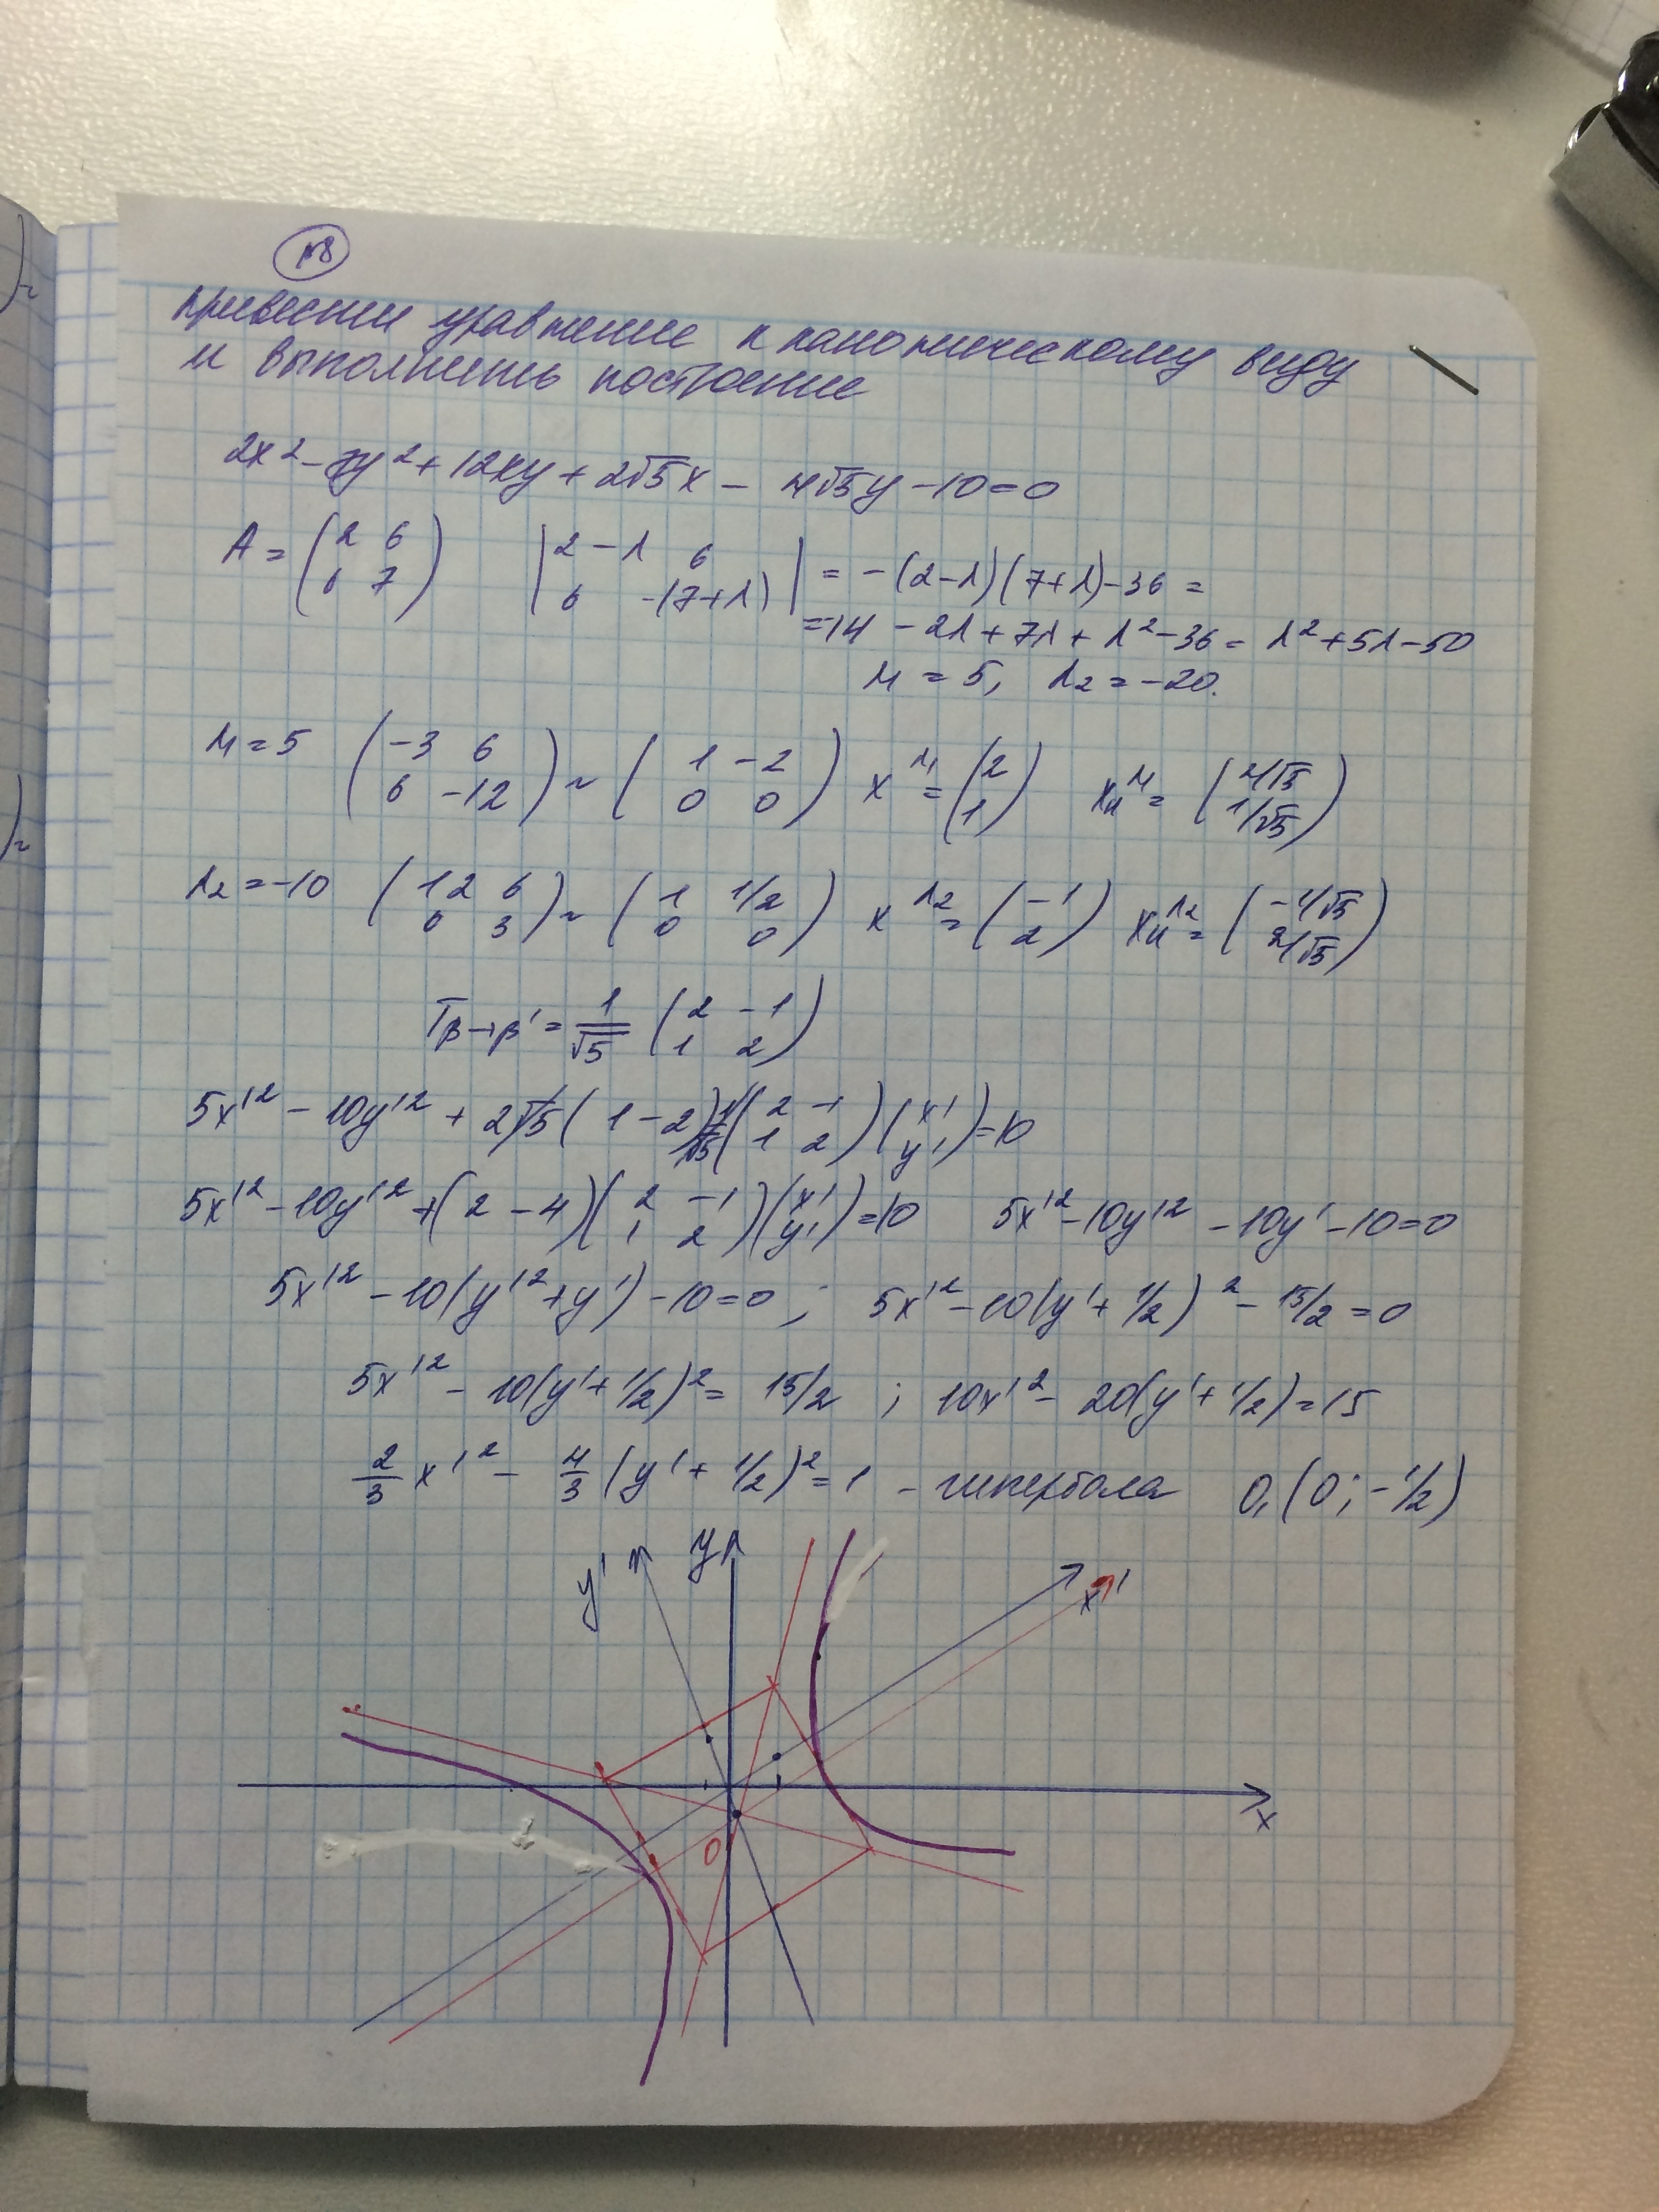 №8
привести уравнение к каноническому виду
и выполнить построение
2x² - 7y² + 12xy + 2√5x - 4√5y - 10 = 0
A = (2 6; 6 7) |2-λ 6; 6 -(7+λ)| = -(2-λ)(7+λ) - 36 =
= -14 - 2λ + 7λ + λ² - 36 = λ² + 5λ - 50
λ1 = 5, λ2 = -20.
λ1 = 5 (-3 6; 6 -12) ~ (1 -2; 0 0) x^λ1 = (2; 1) xн^λ1 = (2/√5; 1/√5)
λ2 = -10 (12 6; 6 3) ~ (1 1/2; 0 0) x^λ2 = (-1; 2) xн^λ2 = (-1/√5; 2/√5)
Tβ→β' = 1/√5 (2 -1; 1 2)
5x'² - 10y'² + 2√5 (1 -2) 1/√5 (2 -1; 1 2)(x'; y') = 10
5x'² - 10y'² + (2 -4)(2 -1; 1 2)(x'; y') = 10 5x'² - 10y'² - 10y' - 10 = 0
5x'² - 10(y'² + y') - 10 = 0 ; 5x'² - 10(y' + 1/2)² - 15/2 = 0
5x'² - 10(y' + 1/2)² = 15/2 ; 10x'² - 20(y' + 1/2) = 15
2/3 x'² - 4/3 (y' + 1/2)² = 1 - гипербола O₁(0; -1/2)
y' y x'
x
O